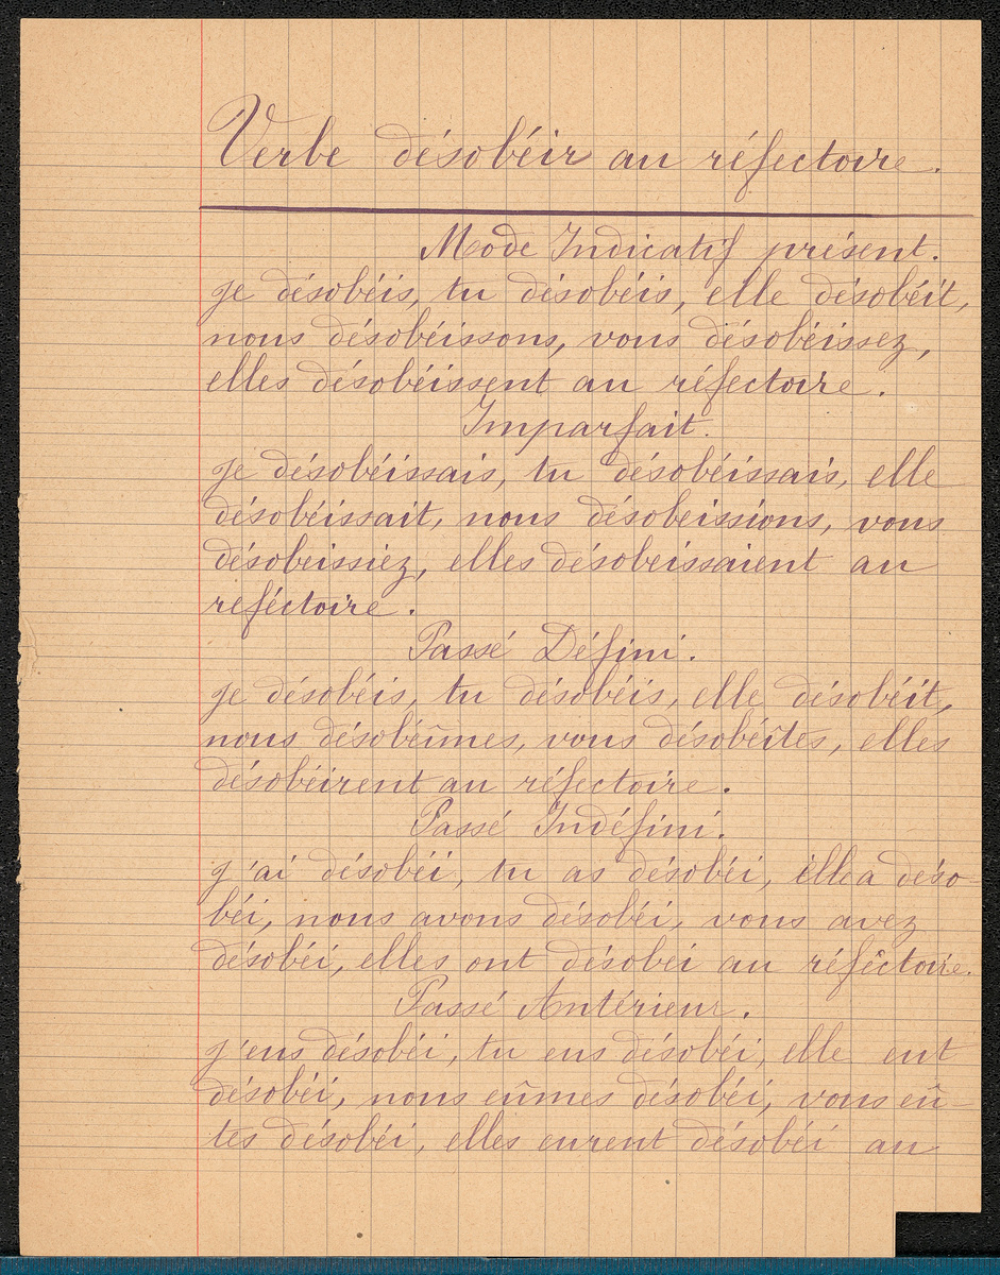 Verbe désobéir au réfectoire.
Mode Indicatif présent.
je désobéis, tu désobéis, elle désobéit,
nous désobéissons, vous désobéissez,
elles désobéissent au réfectoire.
Imparfait.
je désobéissais, tu désobéissais, elle
désobéissait, nous désobeissions, vous
désobeissiez, elles désobeissaient au
reféctoire.
Passé Défini.
je désobéis, tu désobéis, elle désobéit,
nous désobéîmes, vous désobéîtes, elles
désobéirent au réfectoire.
Passé Indéfini.
j'ai désobéi, tu as désobéi, elle a déso-
béi, nous avons désobéi, vous avez
désobéi, elles ont désobei au réfectoire.
Passé Antérieur.
j'eus désobéi, tu eus désobéi, elle eut
désobéi, nous eûmes désobéi, vous eû-
tes désobéi, elles eurent désobéi au